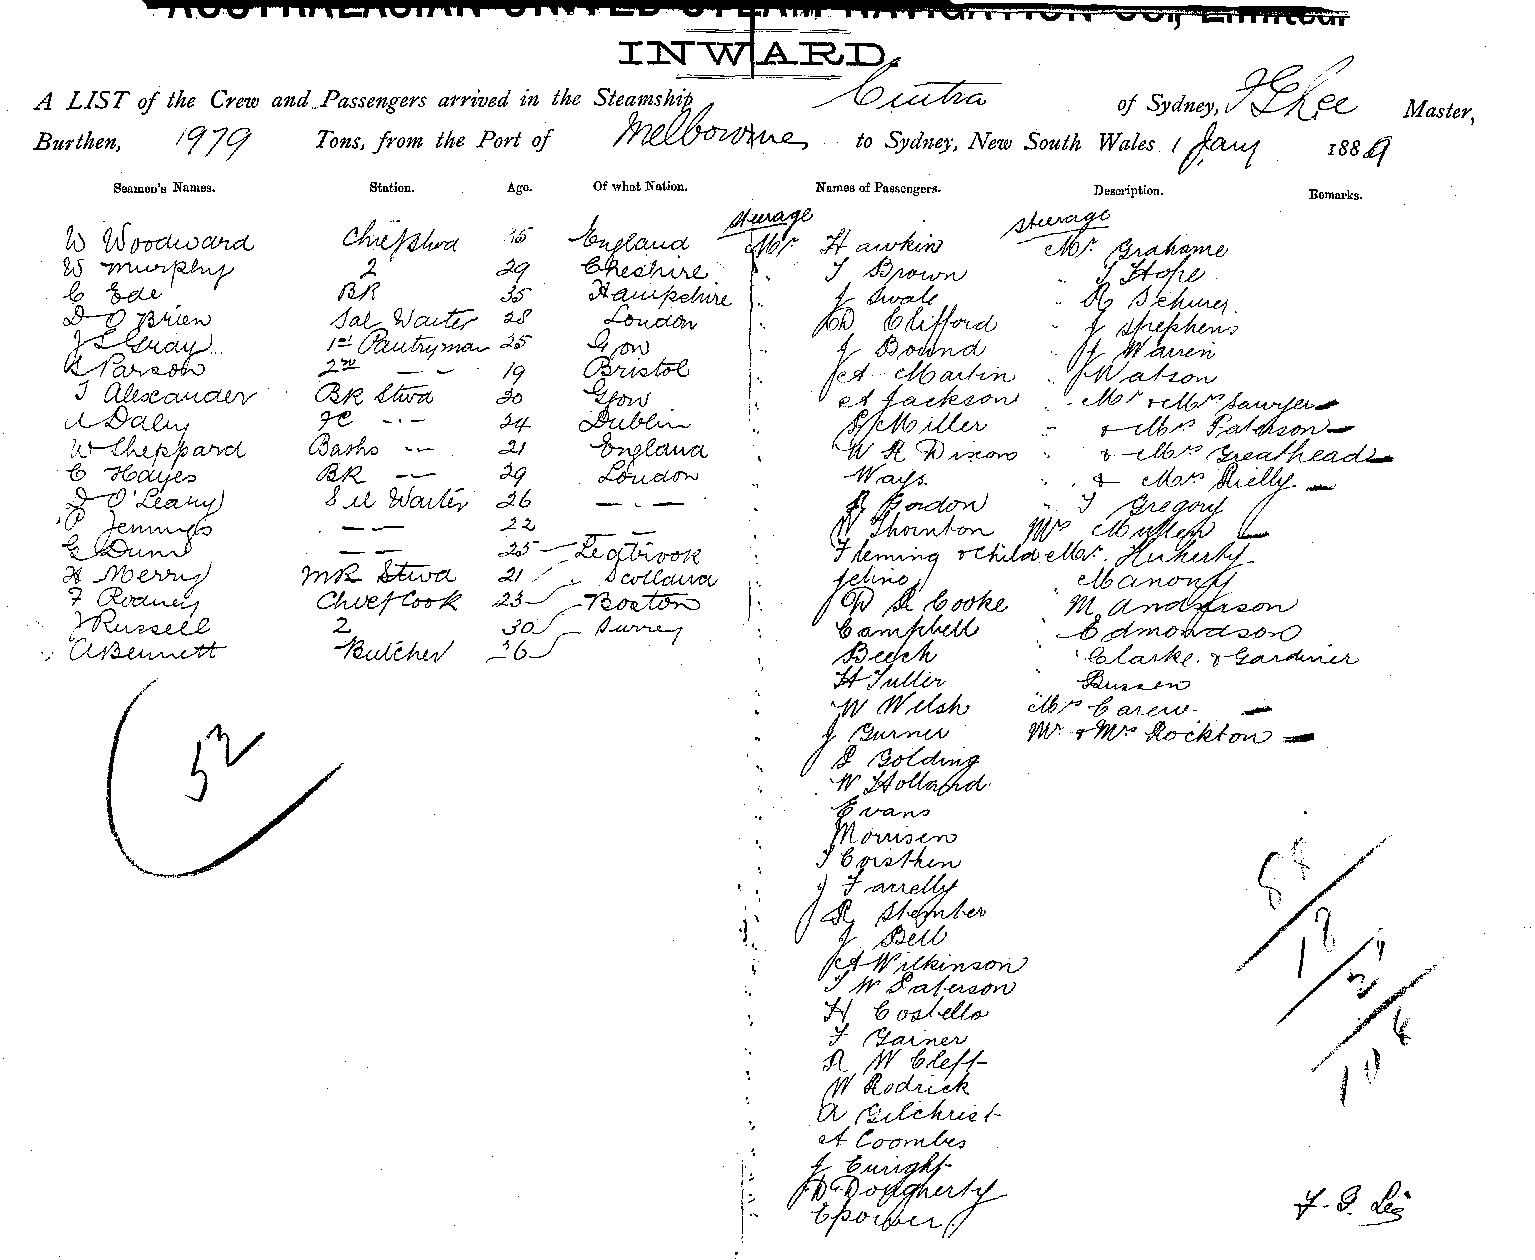 AUSTRALASIAN UNITED STEAM NAVIGATION CO., Limited.
INWARD.
A LIST of the Crew and Passengers arrived in the Steamship Cintra of Sydney, Master,
Burthen, 1979 Tons, from the Port of Melbourne to Sydney, New South Wales 1 Jany 1889
Seamen's Names. Station. Age. Of what Nation. Names of Passengers. Description. Remarks.
Steerage Steerage
W Woodward Chief Stwd England Mr Hawkin Mr Grahame
W Murphy 2 29 Cheshire T Brown T Hope
C Ede BR 35 Hampshire J Swale R Schurer
D O'Brien Sal Waiter 28 London D Clifford J Stephens
J S Gray 1st Pantryman 25 J Bound J Warren
Parson 2nd — - 19 Bristol A Martin J Watson
T Alexander BR Stwd 30 A Jackson Mr & Mrs Sawyer
Daly FC - - - 24 Dublin Miller & Mrs Paterson
W Sheppard Baths - - 21 England W R Dixon & Mrs Greathead
C Hayes BR - - 29 London Ways & Mrs Rielly
D O'Leary Waiter 26 — - — R Gordon T Gregory
P Jennings — — 22 — — Thornton Mrs Mullen
G Dunn — — 25 Fleming & Child Mr
H Merry MR Stwd 21 Scotland
F Rodney Chief Cook 23 Boston D R Cooke M Anderson
J Russell 2 30 Surrey Campbell Edmondson
A Bennett Butcher 36 Beech Clarke & Gardiner
H Fuller
W Welsh Mrs Carew
J Gurner Mr & Mrs Rockton
52
Golding
W Holland
Evans
Morrisen
T Corsthen
J Farrelly
R Stember
J Bell
A Wilkinson
T W Paterson
H Costello
F Garner
R W Cleft
W Rodrick
A Gilchrist
A Coombes
J Enright
D Dougherty
E Power
18
104